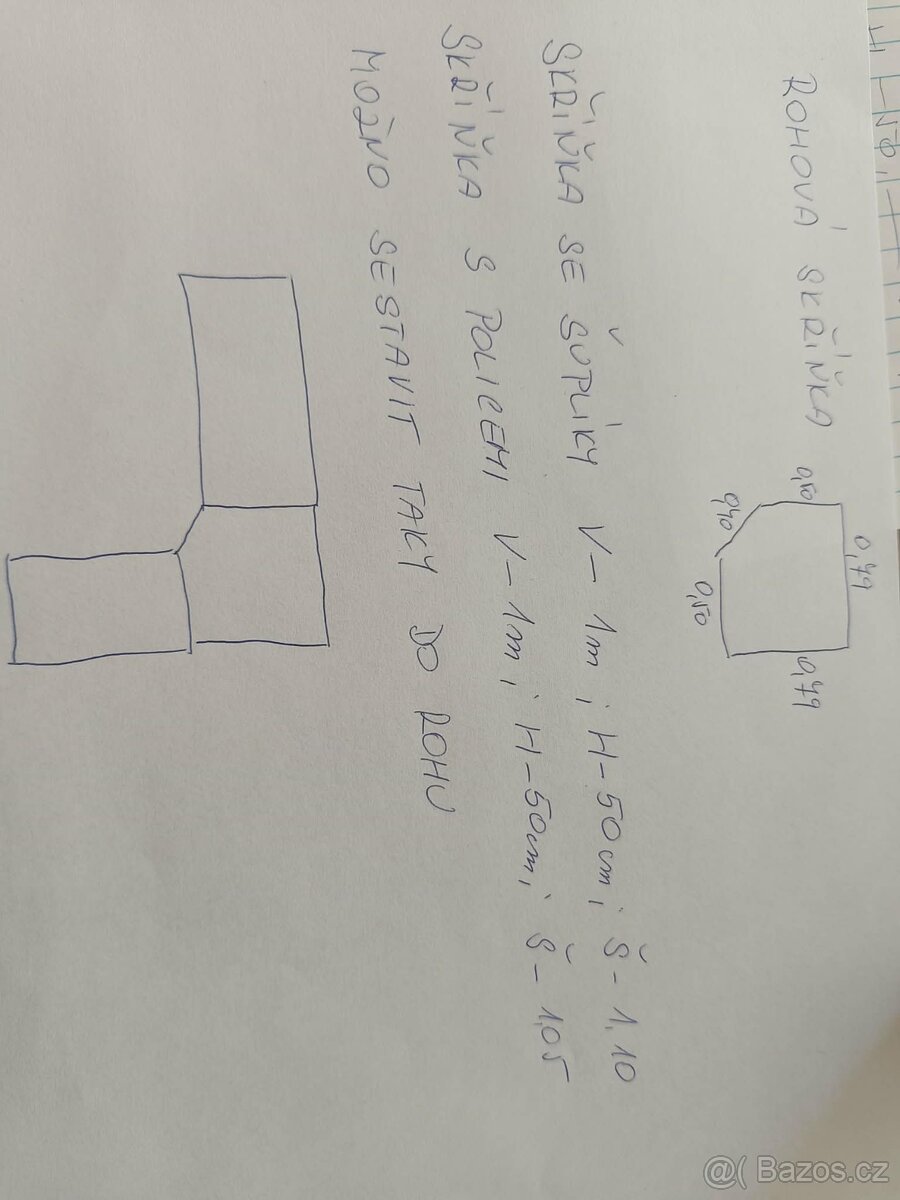 ROHOVÁ SKŘÍŇKA
0,50
0,79
0,40
0,50
0,79
SKŘÍŇKA SE ŠUPLÍKY V-1m, H-50cm, Š-1,10
SKŘÍŇKA S POLICEMI V-1m, H-50cm, Š-1,05
MOŽNO SESTAVIT TAKY DO ROHU
@( Bazos.cz